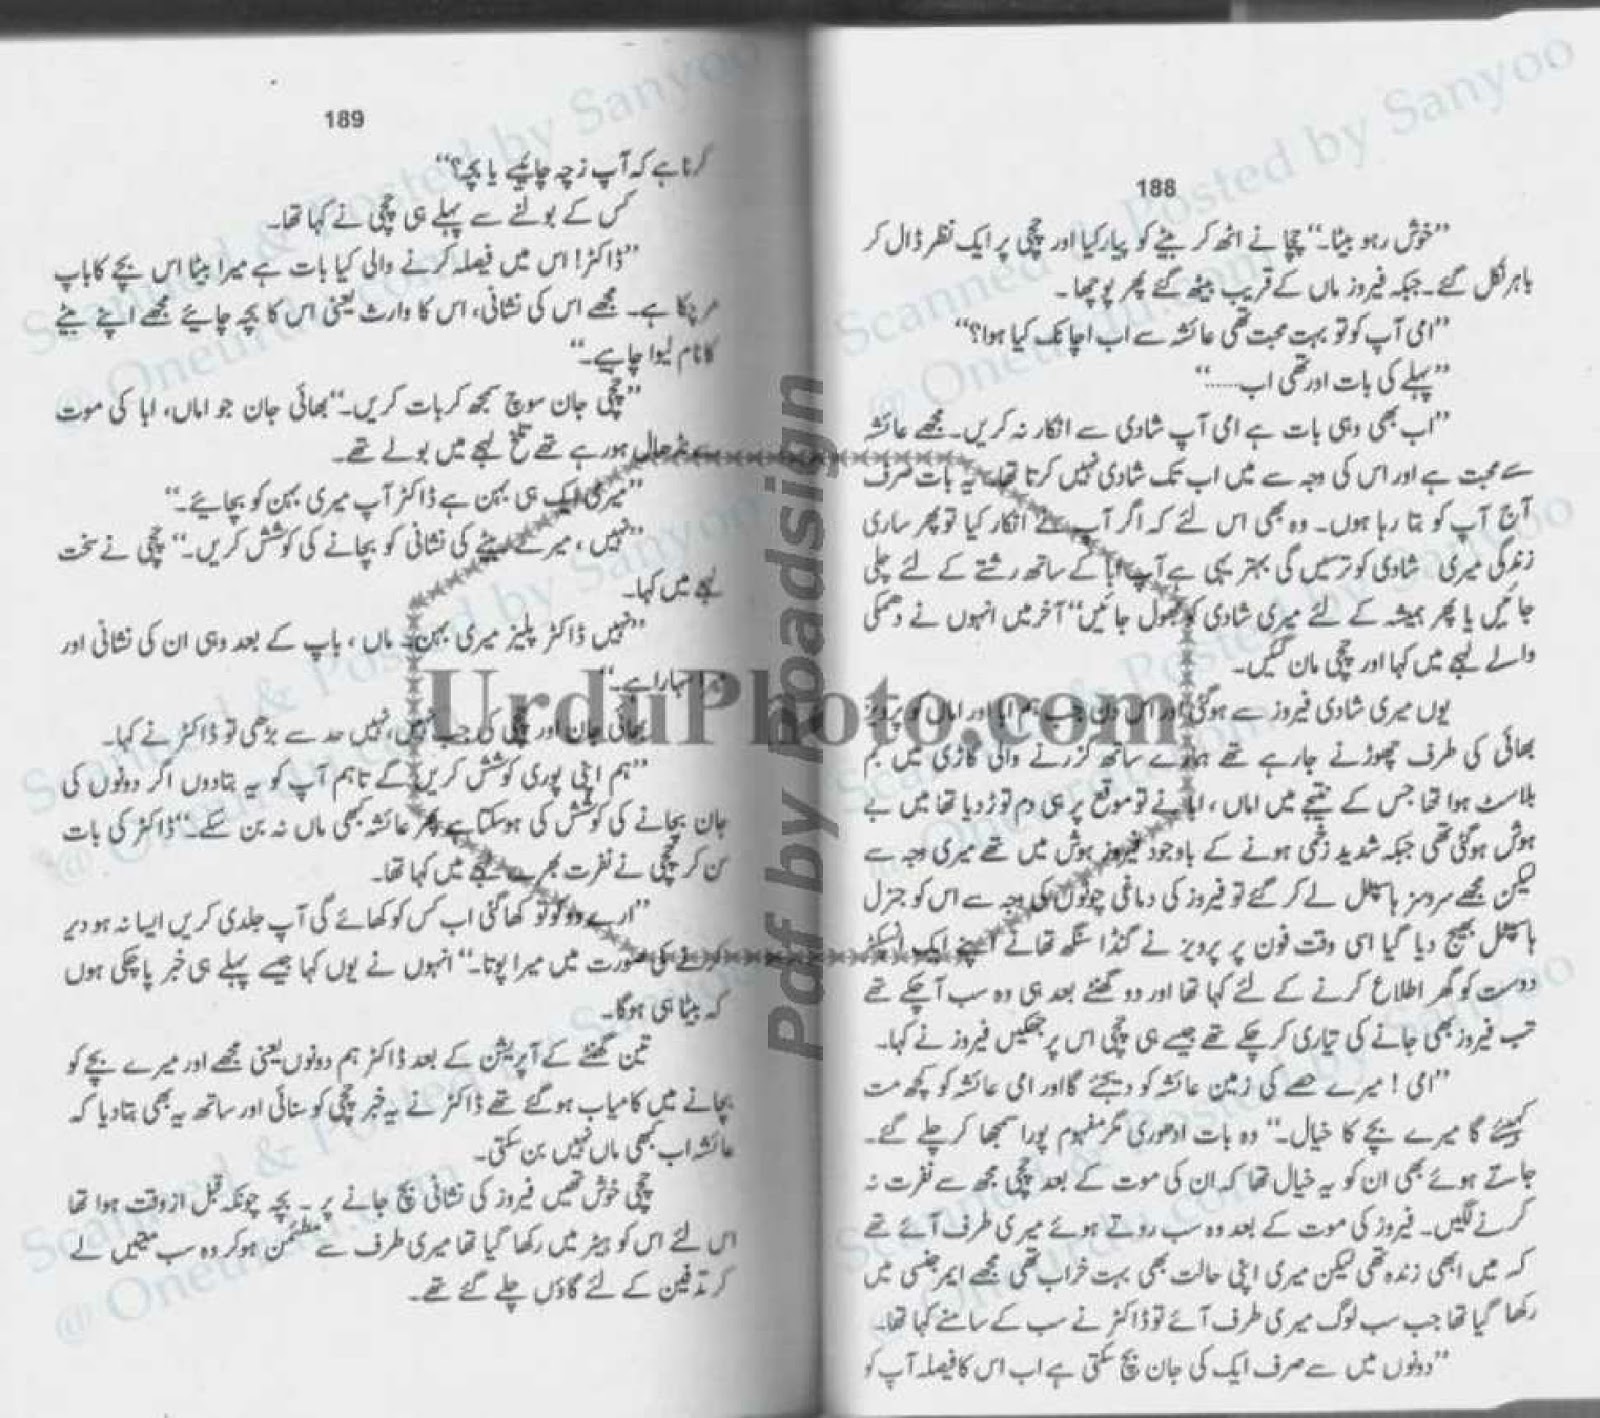 188
"خوش رہو بیٹا۔" چچا نے اٹھ کر بیٹے کو پیار کیا اور چچی پر ایک نظر ڈال کر
باہر نکل گئے۔ جبکہ فیروز ماں کے قریب بیٹھ گئے پھر پوچھا۔
"امی آپ کو تو بہت محبت تھی عائشہ سے اب اچانک کیا ہوا؟"
"پہلے کی بات اور تھی اب......"
"اب بھی وہی بات ہے امی آپ شادی سے انکار نہ کریں۔ مجھے عائشہ
سے محبت ہے اور اس کی وجہ سے میں اب تک شادی نہیں کرتا تھا۔ یہ بات صرف
آج آپ کو بتا رہا ہوں۔ وہ بھی اس لئے کہ اگر آپ نے انکار کیا تو پھر ساری
زندگی میری شادی کو ترسیں گی بہتر یہی ہے آپ ابا کے ساتھ رشتے کے لئے چلی
جائیں یا پھر ہمیشہ کے لئے میری شادی کو بھول جائیں" آخر میں انہوں نے دھمکی
والے لہجے میں کہا اور چچی مان گئیں۔
یوں میری شادی فیروز سے ہو گئی اور اس دن جب ہم ابا اور اماں کو پرویز
بھائی کی طرف چھوڑنے جا رہے تھے ہمارے ساتھ گزرنے والی گاڑی میں بم
بلاسٹ ہوا تھا جس کے نتیجے میں اماں، ابا نے تو موقع پر ہی دم توڑ دیا تھا میں بے
ہوش ہو گئی تھی جبکہ شدید زخمی ہونے کے باوجود فیروز ہوش میں تھے میری وجہ سے
لیکن مجھے سروسز ہاسپٹل لے کر گئے تو فیروز کی دماغی چوٹوں کی وجہ سے اس کو جنرل
ہاسپٹل بھیج دیا گیا اسی وقت فون پر پرویز نے گنڈا سنگھ تھانے اپنے ایک انسپکٹر
دوست کو گھر اطلاع کرنے کے لئے کہا تھا اور دو گھنٹے بعد ہی وہ سب آ چکے تھے
تب فیروز بھی جانے کی تیاری کر چکے تھے جیسے ہی چچی اس پر جھکیں فیروز نے کہا۔
"امی! میرے حصے کی زمین عائشہ کو دیجئے گا اور امی عائشہ کو کچھ مت
کہیئے گا میرے بچے کا خیال۔" وہ بات ادھوری مگر مفہوم پورا سمجھا کر چلے گئے۔
جاتے ہوئے بھی ان کو یہ خیال تھا کہ ان کی موت کے بعد چچی مجھ سے نفرت نہ
کرنے لگیں۔ فیروز کی موت کے بعد وہ سب روتے ہوئے میری طرف آئے تھے
کہ میں ابھی زندہ تھی لیکن میری اپنی حالت بھی بہت خراب تھی مجھے ایمرجنسی میں
رکھا گیا تھا جب سب لوگ میری طرف آئے تو ڈاکٹر نے سب کے سامنے کہا تھا۔
"دونوں میں سے صرف ایک کی جان بچ سکتی ہے اب اس کا فیصلہ آپ کو
189
کرنا ہے کہ آپ زچہ چاہیے یا بچہ؟"
کس کے بولنے سے پہلے ہی چچی نے کہا تھا۔
"ڈاکٹر! اس میں فیصلہ کرنے والی کیا بات ہے میرا بیٹا اس بچے کا باپ
مر چکا ہے۔ مجھے اس کی نشانی، اس کا وارث یعنی اس کا بچہ چاہیے مجھے اپنے بیٹے
کا نام لیوا چاہیے۔"
"چچی جان سوچ سمجھ کر بات کریں۔" بھائی جان جو اماں، ابا کی موت
سے نڈھال ہو رہے تھے تلخ لہجے میں بولے تھے۔
"میری ایک ہی بہن ہے ڈاکٹر آپ میری بہن کو بچائیے۔"
"نہیں، میرے بیٹے کی نشانی کو بچانے کی کوشش کریں۔" چچی نے سخت
لہجے میں کہا۔
"نہیں ڈاکٹر پلیز میری بہن۔ ماں، باپ کے بعد وہی ان کی نشانی اور
میرا سہارا ہے۔"
بھائی جان اور چچی کی جب نہیں، نہیں حد سے بڑھی تو ڈاکٹر نے کہا۔
"ہم اپنی پوری کوشش کریں گے تاہم آپ کو یہ بتا دوں اگر دونوں کی
جان بچانے کی کوشش کی ہو سکتا ہے پھر عائشہ کبھی ماں نہ بن سکے۔" ڈاکٹر کی بات
سن کر چچی نے نفرت بھرے لہجے میں کہا تھا۔
"ارے دو کو تو کھا گئی اب کس کو کھائے گی آپ جلدی کریں ایسا نہ ہو دیر
کرنے کی صورت میں میرا پوتا۔" انہوں نے یوں کہا جیسے پہلے ہی خبر پا چکی ہوں
کہ بیٹا ہی ہوگا۔
تین گھنٹے کے آپریشن کے بعد ڈاکٹر ہم دونوں یعنی مجھے اور میرے بچے کو
بچانے میں کامیاب ہو گئے تھے ڈاکٹر نے یہ خبر چچی کو سنائی اور ساتھ یہ بھی بتا دیا کہ
عائشہ اب کبھی ماں نہیں بن سکتی۔
چچی خوش تھیں فیروز کی نشانی بچ جانے پر۔ بچہ چونکہ قبل از وقت ہوا تھا
اس لئے اس کو ہیٹر میں رکھا گیا تھا میری طرف سے مطمئن ہو کر وہ سب میتیں لے
کر تدفین کے لئے گاؤں چلے گئے تھے۔
UrduPhoto.com
Pdf by Roadsign
Scanned & Posted by Sanyoo
@ Oneurdu.com